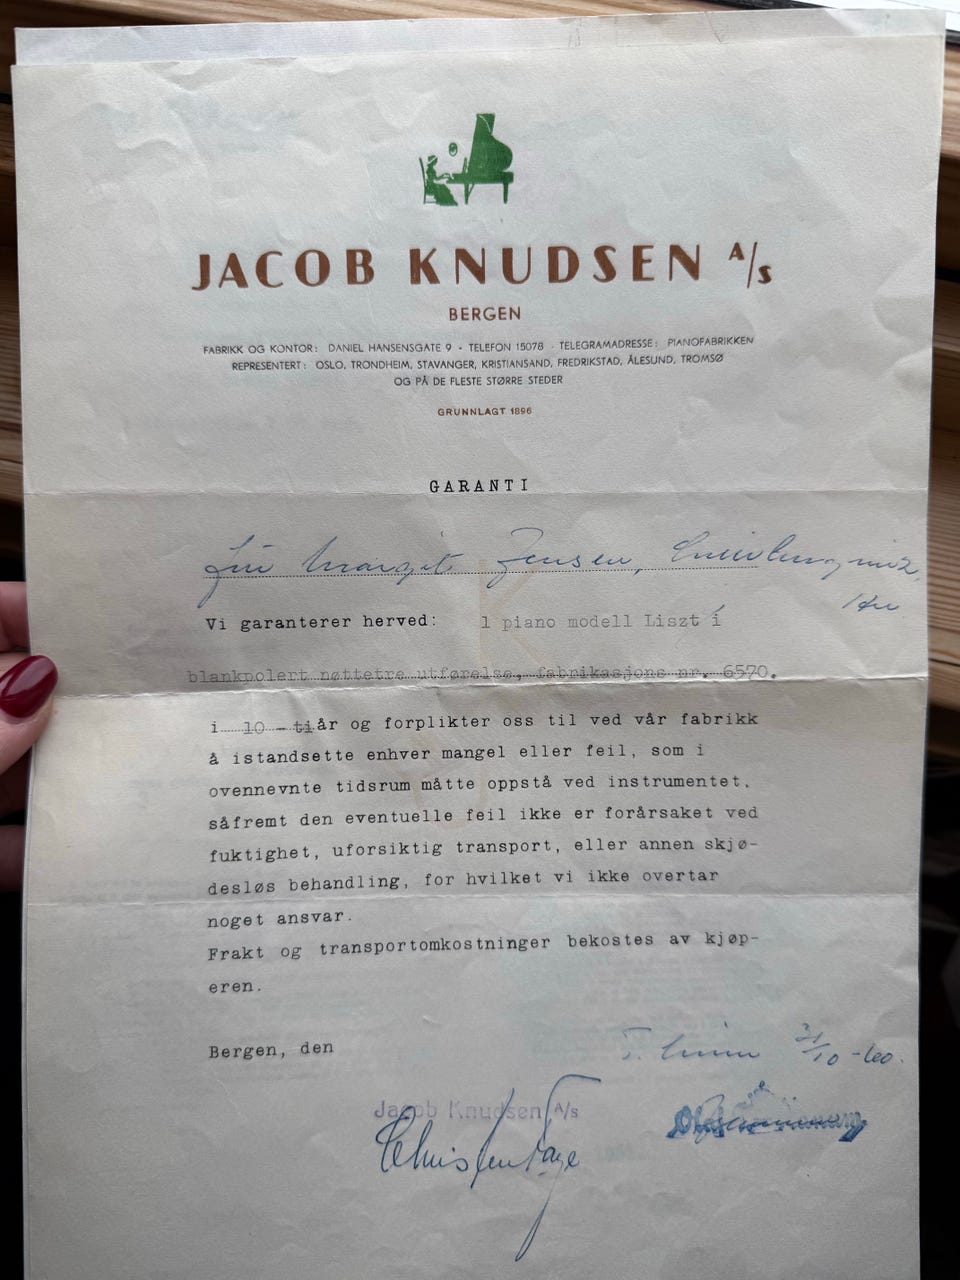 JACOB KNUDSEN A/S
BERGEN
FABRIKK OG KONTOR: DANIEL HANSENSGATE 9 - TELEFON 15078 - TELEGRAMADRESSE: PIANOFABRIKKEN
REPRESENTERT: OSLO, TRONDHEIM, STAVANGER, KRISTIANSAND, FREDRIKSTAD, ÅLESUND, TROMSØ
OG PÅ DE FLESTE STØRRE STEDER
GRUNNLAGT 1896
GARANTI
Margit Jensen,
Vi garanterer herved: 1 piano modell Liszt i
blankpolert nøttetre utførelse, fabrikasjons nr. 6570.
i 10 - ti år og forplikter oss til ved vår fabrikk
å istandsette enhver mangel eller feil, som i
ovennevnte tidsrum måtte oppstå ved instrumentet,
såfremt den eventuelle feil ikke er forårsaket ved
fuktighet, uforsiktig transport, eller annen skjø-
desløs behandling, for hvilket vi ikke overtar
noget ansvar.
Frakt og transportomkostninger bekostes av kjøp-
eren.
Bergen, den 21/10-60.
Jacob Knudsen A/s